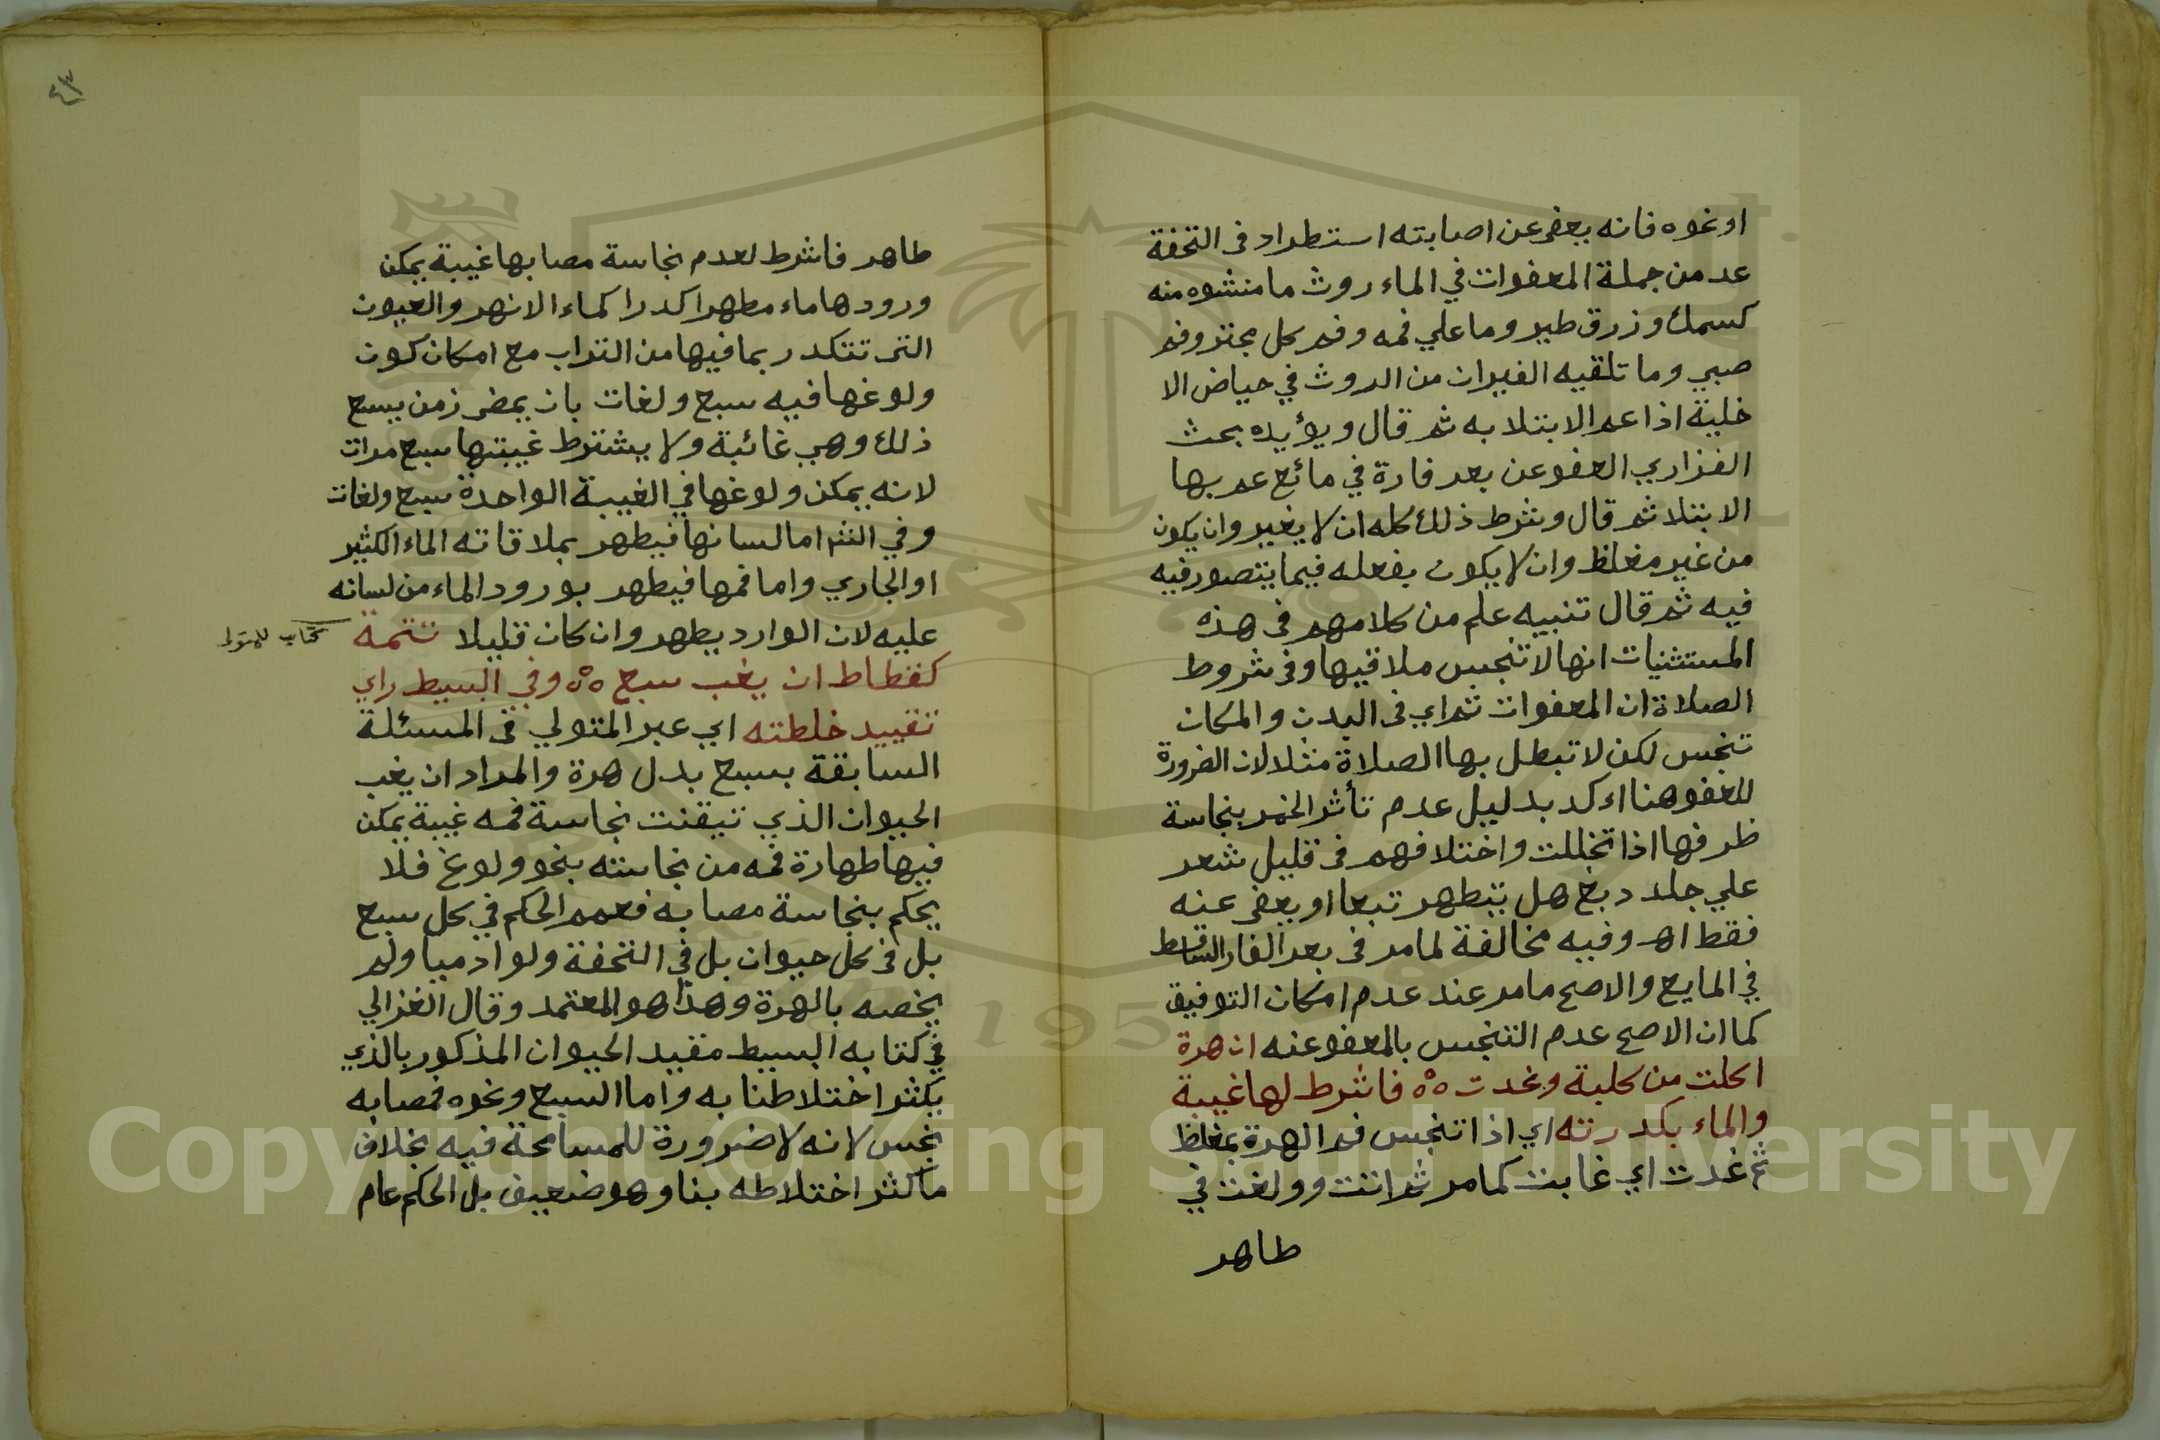 او نحوه فانه يعفى عن اصابته استطراد فى التحفة
عد من جملة المعفوات في الماء روث ما منشوه منه
كسمك وزرق طير وما علي فمه وفم كل مجتر وفم
صبي وما تلقيه الفيران من الروث في حياض الا
خلية اذا عم الابتلا به ثم قال ويؤيده بحث
الفزاري العفو عن بعر فارة في مائع عم بها
الابتلا ثم قال وشرط ذلك كله ان لا يغير وان يكون
من غير مغلظ وان لا يكون بفعله فيما يتصور فيه
فيه ثم قال تنبيه علم من كلامهم فى هذه
المستثنيات انها لا تنجس ملاقيها وفى شروط
الصلاة ان المعفوات ثم اي فى البدن والمكان
تنجس لكن لا تبطل بها الصلاة مثلا لان الضرورة
للعفو هنا اكد بدليل عدم تأثر الخمر بنجاسة
ظرفها اذا تخللت واختلافهم فى قليل شعر
علي جلد دبغ هل يتطهر تبعا او يعفى عنه
فقط اهـ وفيه مخالفة لما مر فى بعر الفار الساقط
في المايع والاصح ما مر عند عدم امكان التوفيق
كما ان الاصح عدم التنجس بالمعفو عنه ان هرة
اكلت من كلبة وغدت ٥٥ فاشرط لها غيبة
والماء بكدرته اي اذا تنجس فم الهرة بمغلظ
ثم غدت اي غابت كما مر ثم اتت وولغت في
طاهر
٤٣
طاهر فاشرط لعدم نجاسة مصابها غيبة يمكن
ورودها ماء مطهرا كدرا كماء الانهر والعيون
التى تتكدر بما فيها من التراب مع امكان كون
ولوغها فيه سبع ولغات بان يمضى زمن يسع
ذلك وهي غائبة ولا يشترط غيبتها سبع مرات
لانه يمكن ولوغها في الغيبة الواحدة سبع ولغات
وفي النثر اما لسانها فيطهر بملاقاته الماء الكثير
او الجاري واما فمها فيطهر بورود الماء من لسانه
عليه لان الوارد يطهر وان كان قليلا تتمة
كتاب للمتولى
كفطاط ان يغب سبع ٥٥ وفي البسيط راي
تقييد خلطته اي عبر المتولي فى المسئلة
السابقة بسبع بدل هرة والمراد ان يغب
الحيوان الذي تيقنت نجاسة فمه غيبة يمكن
فيها طهارة فمه من نجاسته بنحو ولوغ فلا
يحكم بنجاسة مصابه فعمم الحكم في كل سبع
بل فى كل حيوان بل في التحفة ولو ادميا ولم
يخصه بالهرة وهذا هو المعتمد وقال الغزالي
في كتابه البسيط مقيد الحيوان المذكور بالذي
يكثر اختلاطنا به واما السبع ونحوه فمصابه
نجس لانه لا ضرورة للمسامحة فيه بخلاف
ما كثر اختلاطه بنا وهو ضعيف بل الحكم عام
Copyright © King Saud University
1957